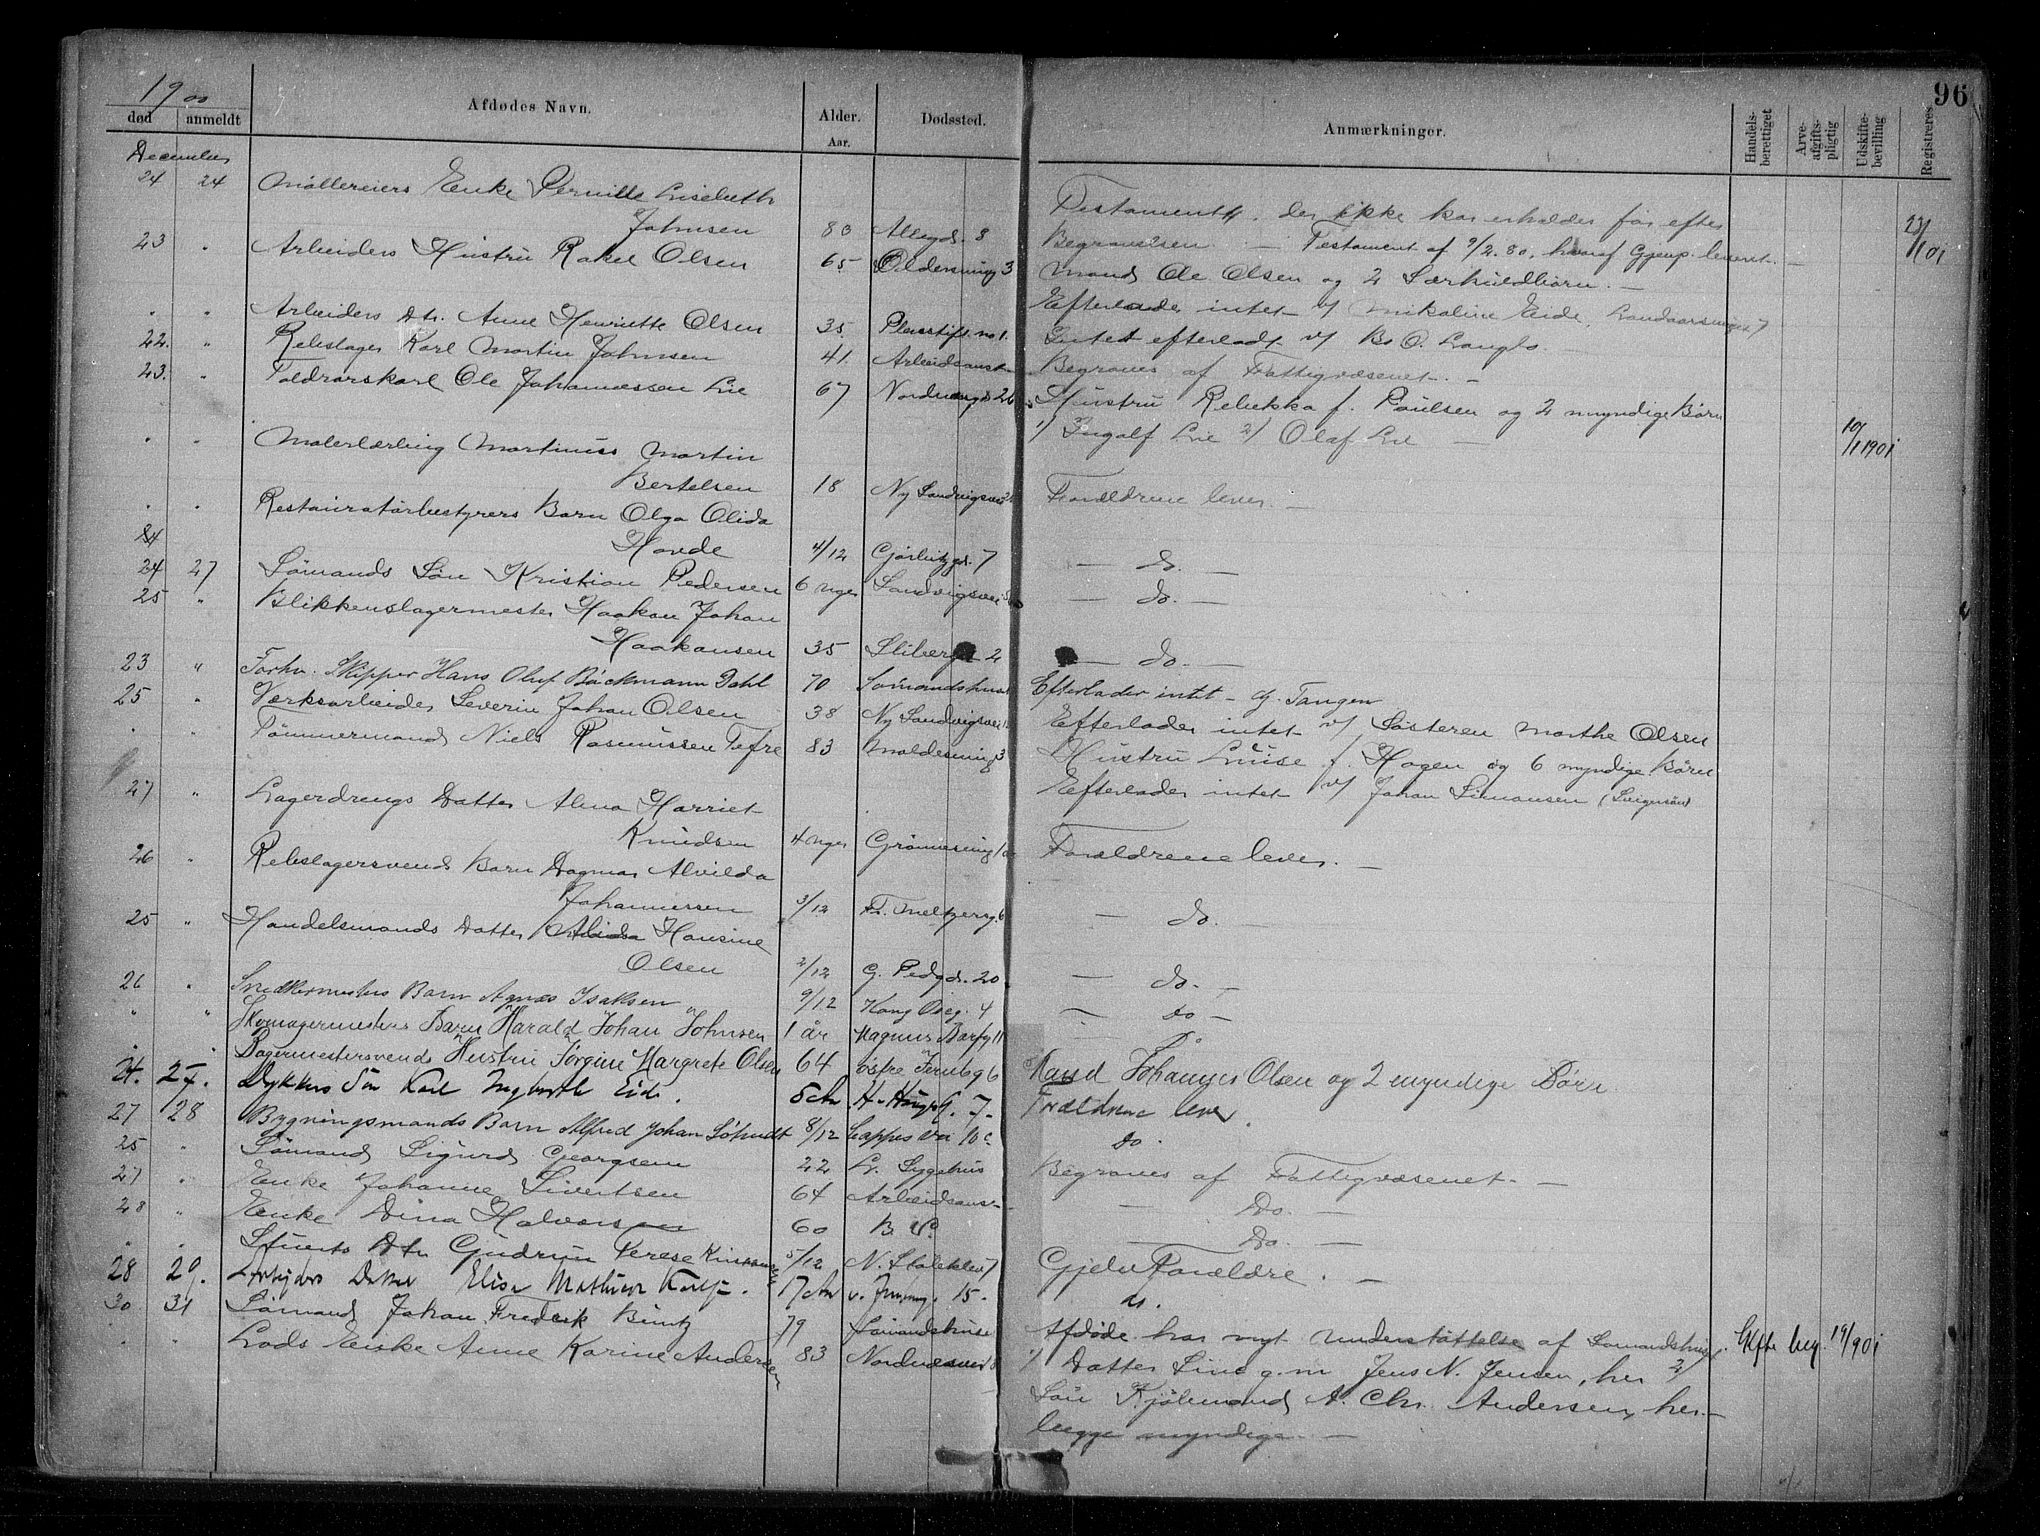 96
1900
død anmeldt Afdødes Navn. Alder. Aar. Dødssted. Anmærkninger. Handelsberettiget Arveafgiftspligtig Udskiftebevilling Registreres
December
24 24 Møllereiers Enke Pernille Lisebeth
Johnsen 80 Allegd. 8 Testament, der ikke kan erholdes før efter
Begravelsen. — Testament af 9/2.80, hvoraf Gjenp. leveret. 23/1 01
23 " Arbeiders Hustru Rakel Olsen 65 Oldersmug 3 Mand Ole Olsen og 2 Særkuldbørn. —
" " Arbeiders Dtr. Anne Henriette Olsen 35 Pleiestift. no 1. Efterlader intet v/ Mikaline Eide, 7
22. " Rebslager Karl Martin Johnsen 41. Arbeidsanst. Intet efterladt v/ Bs O. Langlo.
Begraves af Fattigvæsenet. —
23. " Toldrorskarl Ole Johannessen Lie 67 Nordnægd 26 Hustru Rebekka f. Paulsen og 2 myndige Børn
1/ Ingolf Lie 2/ Olaf Lie — 10/1 1901
" " Malerlærling Martinus Martin
Bertelsen 18 Ny Sandvigsvei Forældrene lever. —
" " Restauratørbestyrers Barn Olga Olida
Hovde 4/12 Gørbitzgd. 7 — do. —
24 27 Sømands Søn Kristian Pedersen 6 uger Sandvigsvei — do. —
25 " Blikkenslagermester Haakon Johan
Haakonsen 35 Sliberg 2 — do. —
23 " Forhv. Skipper Hans Oluf Bäckmann Dahl 70 Sømandshuset Efterlader intet — af. Tangen
25 " Værksarbeider Severin Johan Olsen 38 Ny Sandvigsvei Efterlader intet v/ Søsteren Marthe Olsen
" " Tømmermand Niels Rasmussen Tefre 83 Moldesmug 3 Hustru Luise f. Hagen og 6 myndige Børn
Efterlader intet v/ Johan Simonsen (Svigersøn)
27 " Lagerdrengs Datter Alma Harriet
Knudsen 4 uger Grønnesmug Forældrene lever. —
26 " Rebslagersvends Barn Dagmar Alvilda
Johannessen 3/12 Fr. Meltzersg. 6 — do. —
25 " Handelsmands Datter Alida Hansine
Olsen 2/12 G. Pedgd. 20 — do. —
26 " Snedkermesters Barn Agnes Isaksen 9/12 Kong Oscg. 4 — do —
" " Skomagermesters Barn Harald Johan Johnsen 1 år Magnus Barfg 11
" " Bagermestersvends Hustru Jørgine Margrete Olsen 64 østre Jernbg 6 Mand Johannes Olsen og 2 myndige Børn
24. 27. Dykkers Søn Karl Ingbrth Eide. 5 Aar H. Haugs G. 7. Forældrene lever.
27 28 Bygningsmands Barn Alfred Johan Søhndt 8/12 Cappes Vei 10 c Do.
25 " Sømand Sigurd Georgsen 22 Lr. Sygehus Begraves af Fattigvæsenet. —
27 " Enke Johanne Sivertsen 64 Arbeidsanst. — Do. —
28 " Enke Dina Halvorsen 60 B. P. — Do. —
" " Stuerts Dtr. Gudrun Terese 5/12 N. Stølekler 7 Gjelv Forældre. —
28 29. Arbeiders Datter Elise Mathilde 17 Aar 15. do.
30. 31 Sømand Johan Fredrik Büntz 79 Sømandshuset Afdøde har nydt understøttelse af Sømandshuset. 
" " Lods Enke Anne Karine Andersen 83 Nordnæsvei 1/ Datter Line g.m. Jens N. Jensen, her 2/ Uskifte bev. 19/1 901
Søn Kjølemand A. Chr. Andersen, her. —
begge myndige. —